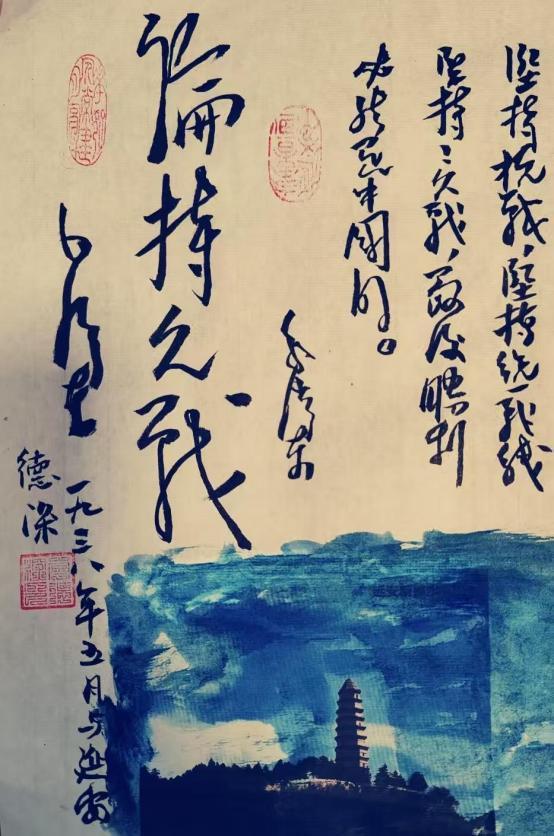 坚持抗战，坚持统一战线
坚持持久战，最后胜利
必然是中国的。
毛泽东
論持久战
毛泽东
一九三八年五月于延安
德深